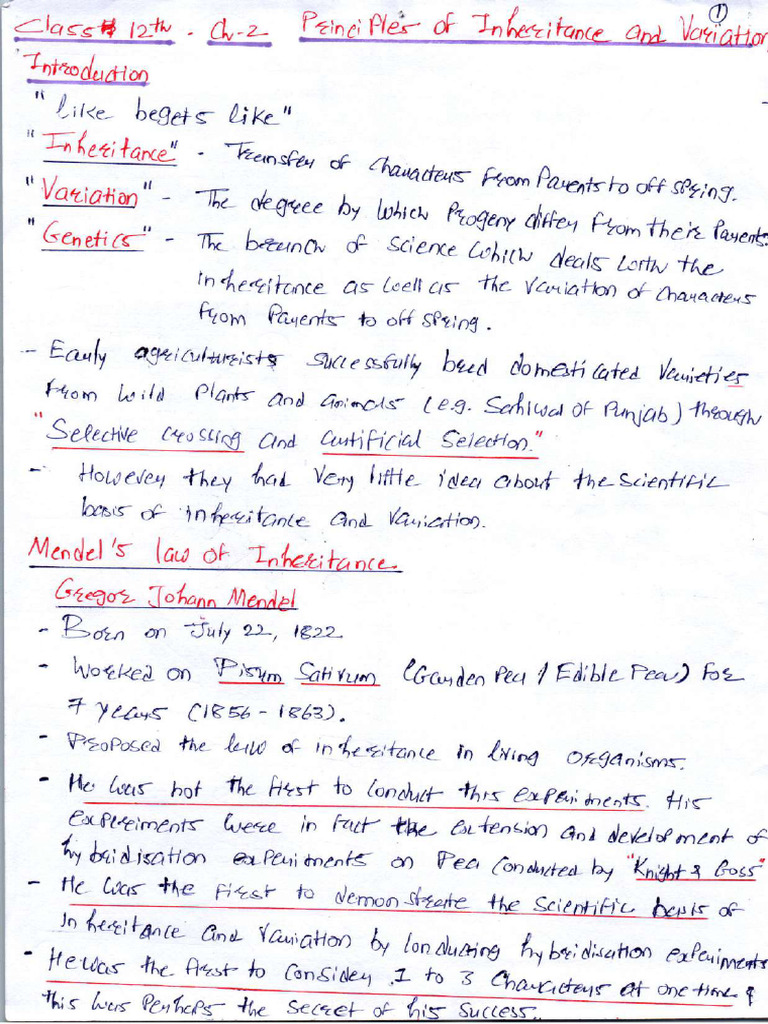 ①
Class 12th - Ch-2 Principles of Inheritance and Variation
Introduction
"like begets like"
"Inheritance" - Transfer of characters from Parents to offspring.
"Variation" - The degree by which Progeny differ from their Parents.
"Genetics" - The branch of science which deals with the
inheritance as well as the variation of characters
from Parents to offspring.
- Early agriculturists successfully bred domesticated varieties
from wild plants and animals (e.g. Sahiwal of Punjab) through
"Selective crossing and artificial selection."
- However they had very little idea about the scientific
basis of inheritance and variation.
Mendel's law of Inheritance.
Gregor Johann Mendel
- Born on July 22, 1822
- Worked on Pisum Sativum (Garden Pea / Edible Pea) for
7 years (1856 - 1863).
- Proposed the law of inheritance in living organisms.
- He was not the first to conduct this experiments. His
experiments were in fact the extension and development of
hybridisation experiments on Pea conducted by "Knight & Goss"
- He was the first to demonstrate the scientific basis of
inheritance and variation by conducting hybridisation experiments
- He was the first to consider 1 to 3 characters at one time &
this was perhaps the secret of his success.